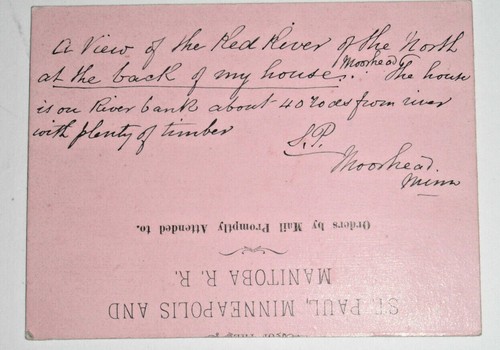 A View of the Red River of the North
at the back of my house. Moorhead. The house
is on River bank about 40 rods from river
with plenty of timber
S.P.
Moorhead.
Minn
Orders by Mail Promptly Attended to.
ST. PAUL, MINNEAPOLIS AND
MANITOBA R. R.